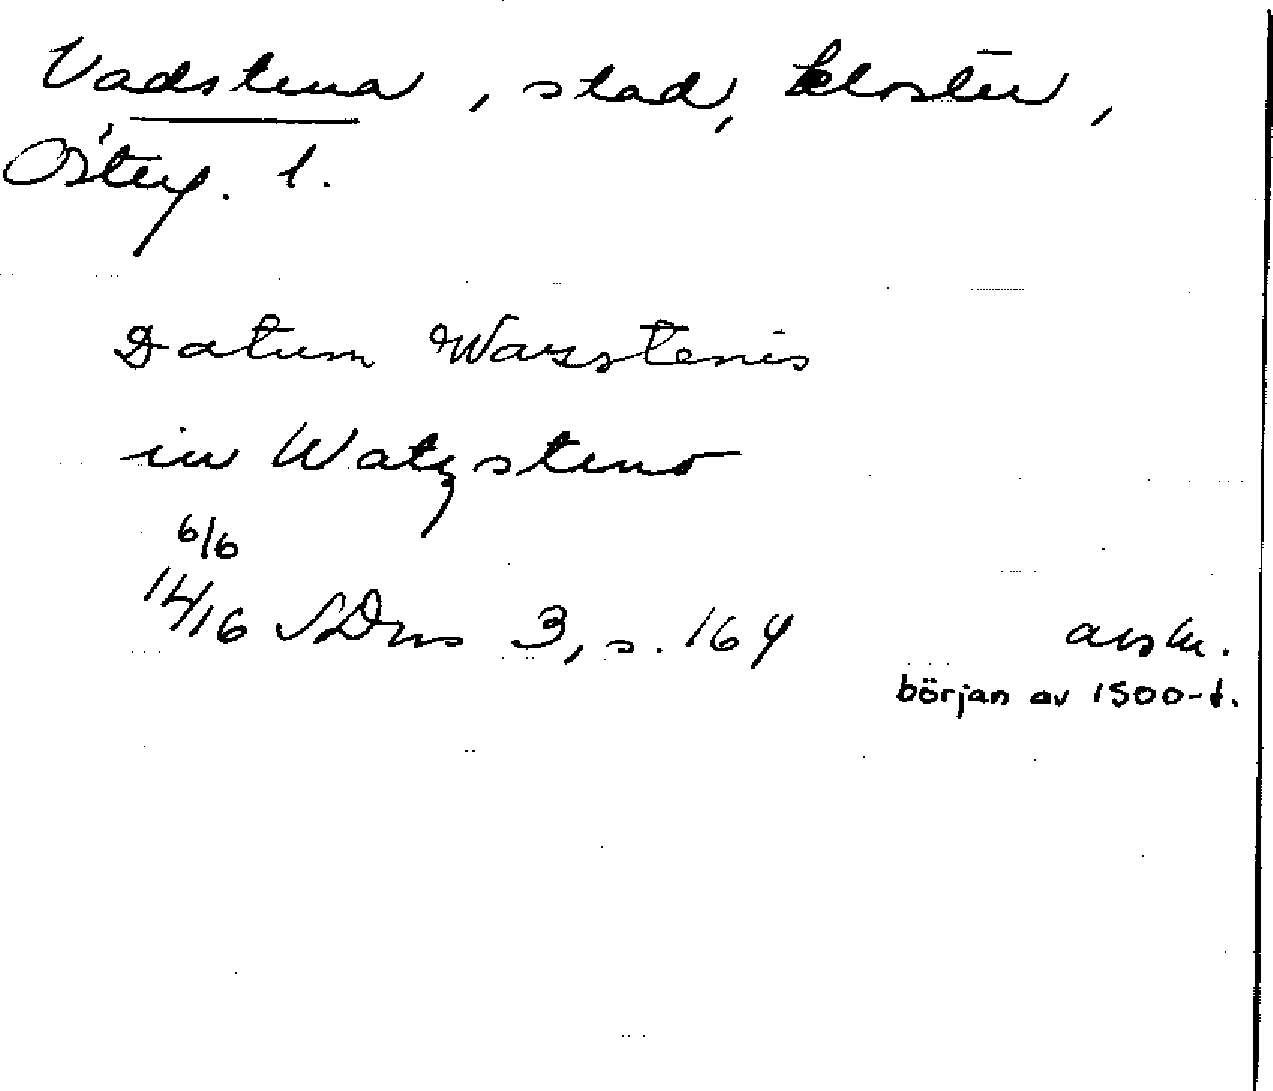 Vadstena, stad, kloster,
Österg. l.
Datum Wazstenis
in Watzsteno
6/6
14/16 SDns 3, s. 164 avskr.
början av 1500-t.